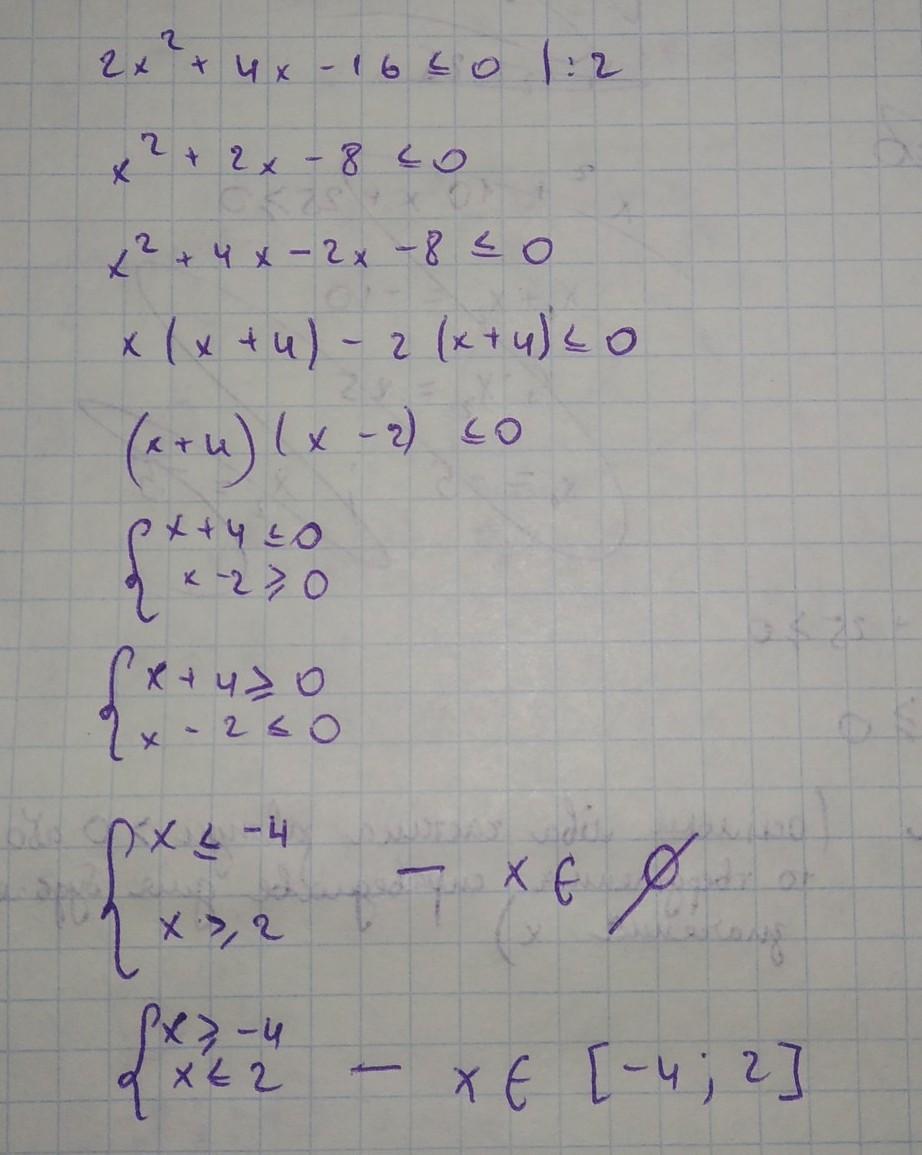 2x² + 4x - 16 ≤ 0 | : 2
x² + 2x - 8 ≤ 0
x² + 4x - 2x - 8 ≤ 0
x (x + 4) - 2 (x + 4) ≤ 0
(x + 4) (x - 2) ≤ 0
{ x + 4 ≤ 0
x - 2 ≥ 0
{ x + 4 ≥ 0
x - 2 ≤ 0
{ x ≤ -4
x ≥ 2 — x ∈ ∅
{ x ≥ -4
x ≤ 2 — x ∈ [-4 ; 2]